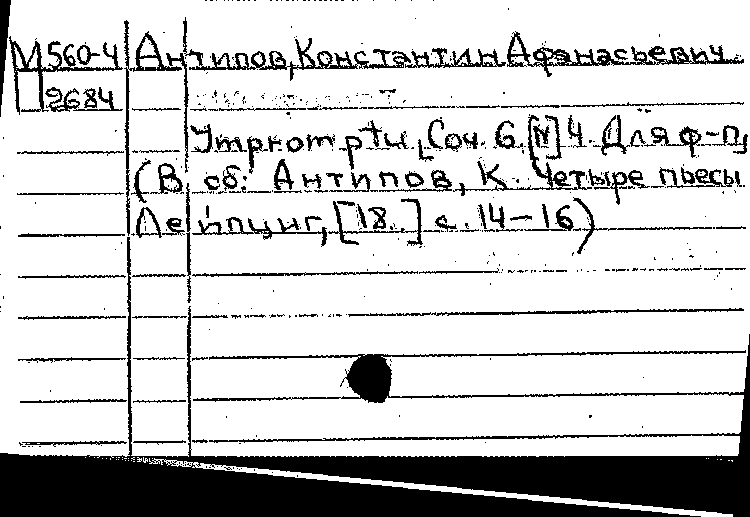 М560-4 Антипов, Константин Афанасьевич.
Ц2684
Утркотрtи, [Соч. 6. [N] 4. Для ф-п,
(В сб: Антипов, К. Четыре пьесы
Лейпциг, [18..] с. 14-16)